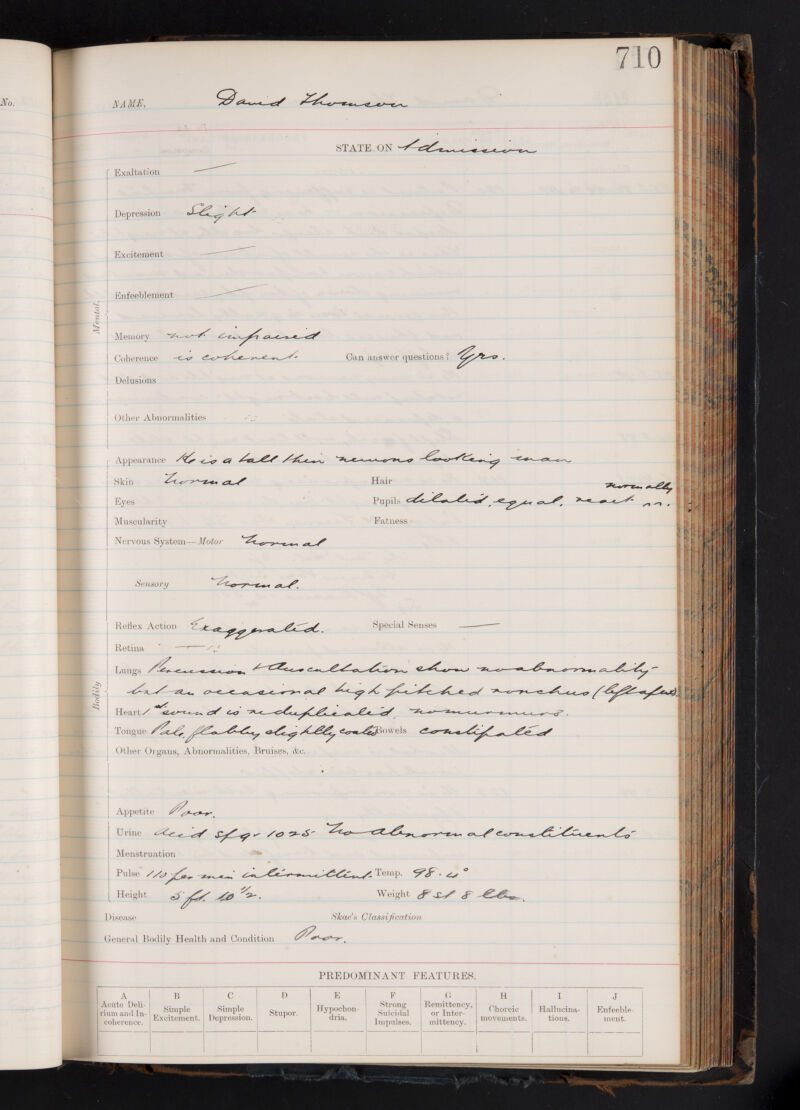 710
No.
NAME, David Thomson
STATE ON Admission
Mental.
Exaltation —
Depression Slight
Excitement —
Enfeeblement —
Memory not impaired
Coherence is coherent. Can answer questions? Yes.
Delusions
Other Abnormalities
Bodily
Appearance He is a tall thin nervous looking man
Skin Normal Hair
Eyes Pupils dilated, equal, react normally
Muscularity Fatness
Nervous System—Motor Normal
Sensory Normal.
Reflex Action Exaggerated. Special Senses —
Retina —
Lungs Percussion & Auscultation show no abnormality
but an occasional high pitched ronchus (left apex).
Heart 1st sound is reduplicated, no murmurs.
Tongue Pale, flabby slightly coated Bowels constipated
Other Organs, Abnormalities, Bruises, &c.
Appetite Poor.
Urine Acid Sp gr 1025 No abnormal constituents
Menstruation
Pulse 110 per min intermittent. Temp. 98.4°
Height 5 ft. 10 1/2. Weight 8 st 8 lbs.
Disease Skae's Classification
General Bodily Health and Condition Poor.
PREDOMINANT FEATURES.
A B C D E F G H I J
Acute Delirium and Incoherence. Simple Excitement. Simple Depression. Stupor. Hypochondria. Strong Suicidal Impulses. Remittency, or Intermittency. Choreic movements. Hallucinations. Enfeeblement.